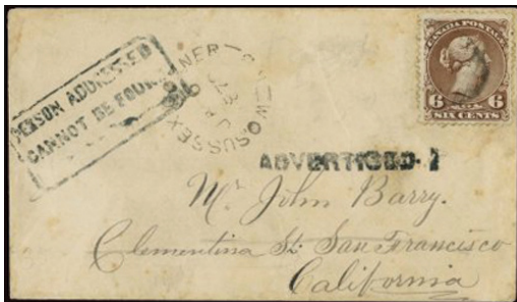 PERSON ADDRESSED
CANNOT BE FOUND
SUSSEX CORNER
CANADA POSTAGE
6 6
SIX CENTS
ADVERTISED
Mr. John Barry.
Clementina St. San Francisco
California